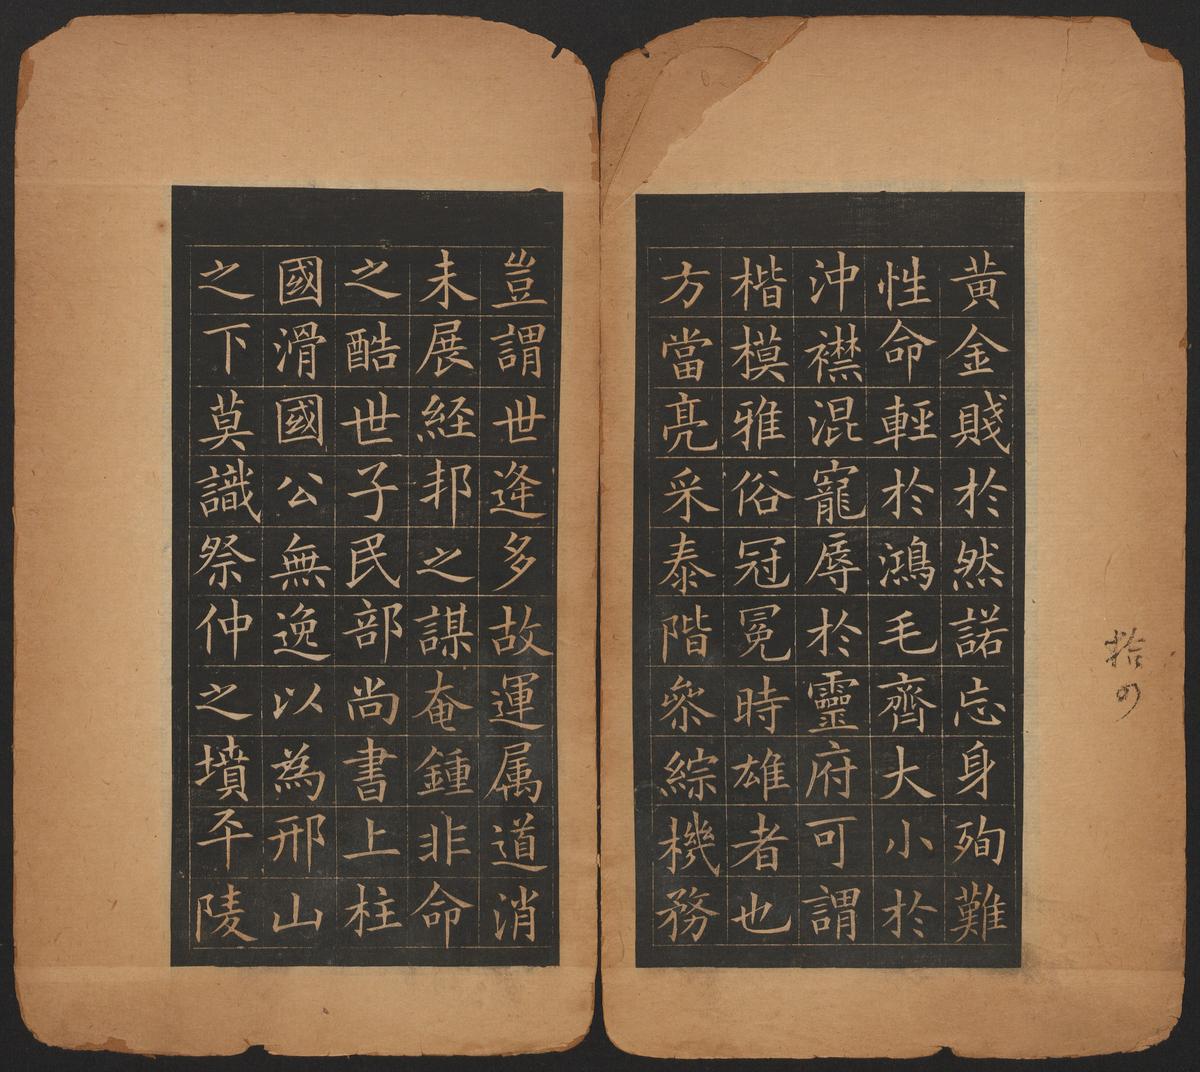 黄金賤於然諾忘身殉難
性命輕於鴻毛齊大小於
沖襟混寵辱於靈府可謂
楷模雅俗冠冕時雄者也
方當亮采泰階叅綜機務
豈謂世逄多故運属道消
未展経邦之謀奄鍾非命
之酷世子民部尚書上柱
國滑國公無逸以為邢山
之下莫識祭仲之墳平陵
拾の